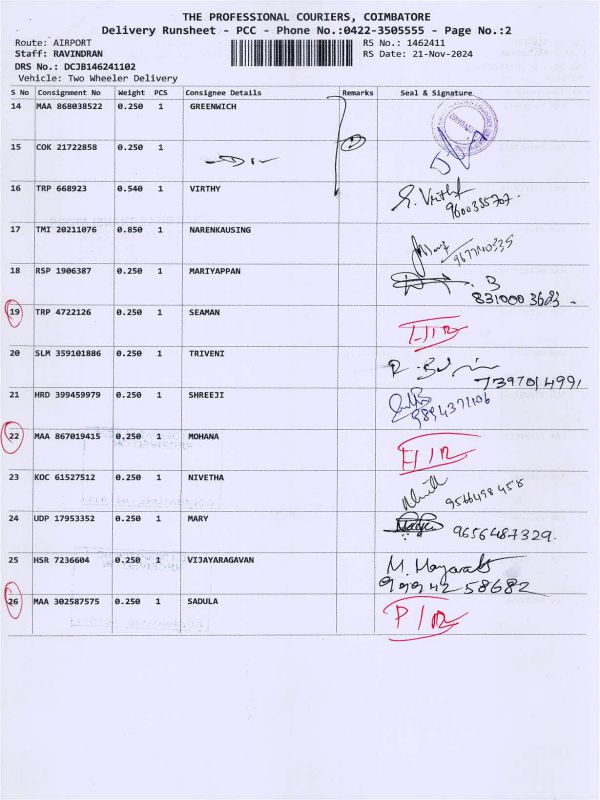 THE PROFESSIONAL COURIERS, COIMBATORE
Delivery Runsheet - PCC - Phone No.:0422-3505555 - Page No.:2
Route: AIRPORT RS No.: 1462411
Staff: RAVINDRAN RS Date: 21-Nov-2024
DRS No.: DCJB146241102
Vehicle: Two Wheeler Delivery
S No Consignment No Weight PCS Consignee Details Remarks Seal & Signature
14 MAA 868038522 0.250 1 GREENWICH
15 COK 21722858 0.250 1
16 TRP 668923 0.540 1 VIRTHY
9600335707.
17 TMI 20211076 0.850 1 NARENKAUSING
18 RSP 1906387 0.250 1 MARIYAPPAN
B
8310003683
19 TRP 4722126 0.250 1 SEAMAN
20 SLM 359101886 0.250 1 TRIVENI
7397014991
21 HRD 399459979 0.250 1 SHREEJI
9894371106
22 MAA 867019415 0.250 1 MOHANA
23 KOC 61527512 0.250 1 NIVETHA
9566498458
24 UDP 17953352 0.250 1 MARY
9656487329.
25 HSR 7236604 0.250 1 VIJAYARAGAVAN
9994258682
26 MAA 302587575 0.250 1 SADULA